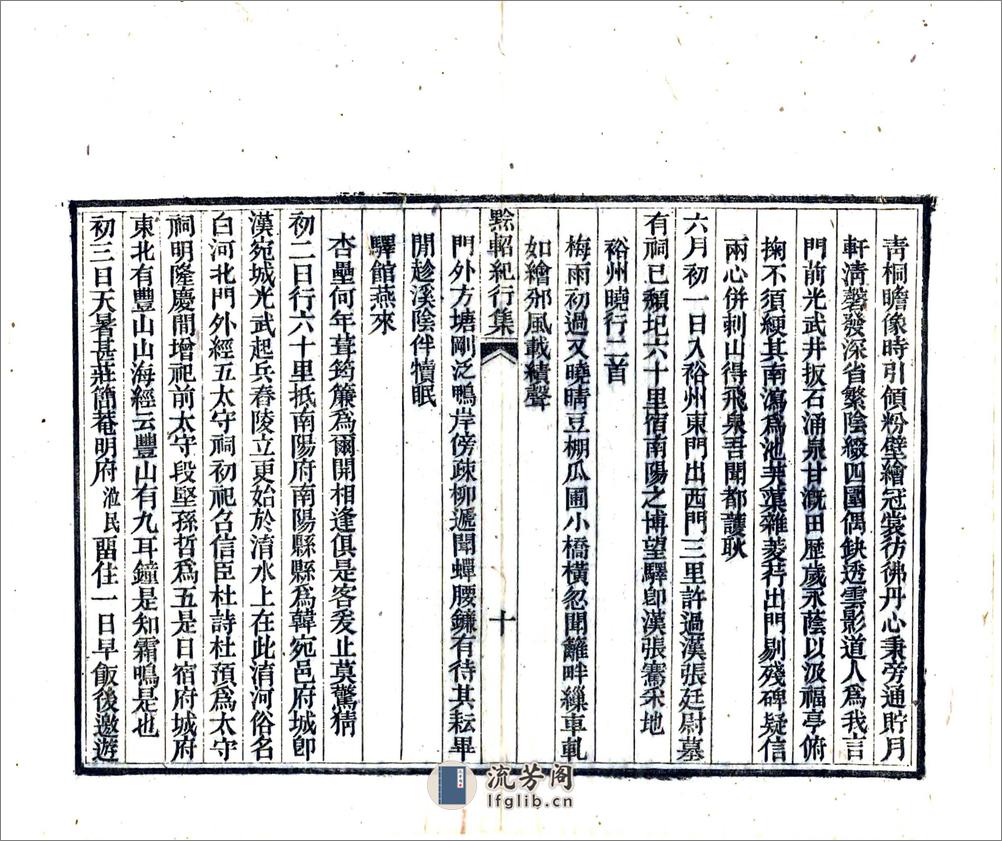 青桐瞻像時引傾粉壁繪冠裳彷彿丹心秉旁通貯月
軒清磬發深省繁陰綴四圍偶缺透雲影道人爲我言
門前光武井扳石涌泉甘漑田歷歲永蔭以汲福亭俯
掬不須綆其南瀉爲池芙蕖雜菱荇出門剔殘碑疑信
兩心併刺山得飛泉吾聞都護耿
六月初一日入裕州東門出西門三里許過漢張廷尉墓
有祠已頹圯六十里宿南陽之博望驛卽漢張騫采地
裕州曉行二首
梅雨初過又曉晴豆棚瓜圃小橋橫忽聞籬畔繅車軋
如繪邠風載績聲
黔軺紀行集
十
門外方塘剛泛鴨岸傍疎柳遞聞蟬腰鐮有待其耘畢
閒趁溪陰伴犢眠
驛館燕來
杏壘何年葺筠簾爲爾開相逢俱是客爰止莫驚猜
初二日行六十里抵南陽府南陽縣縣爲韓宛邑府城卽
漢宛城光武起兵舂陵立更始於淯水上在此淯河俗名
白河北門外經五太守祠初祀召信臣杜詩杜預爲太守
祠明隆慶閒增祀前太守段堅孫哲爲五是日宿府城府
東北有豐山山海經云豐山有九耳鐘是知霜鳴是也
初三日天暑甚莊簡菴明府 民畱住一日早飯後邀遊
流芳阁
lfglib.cn